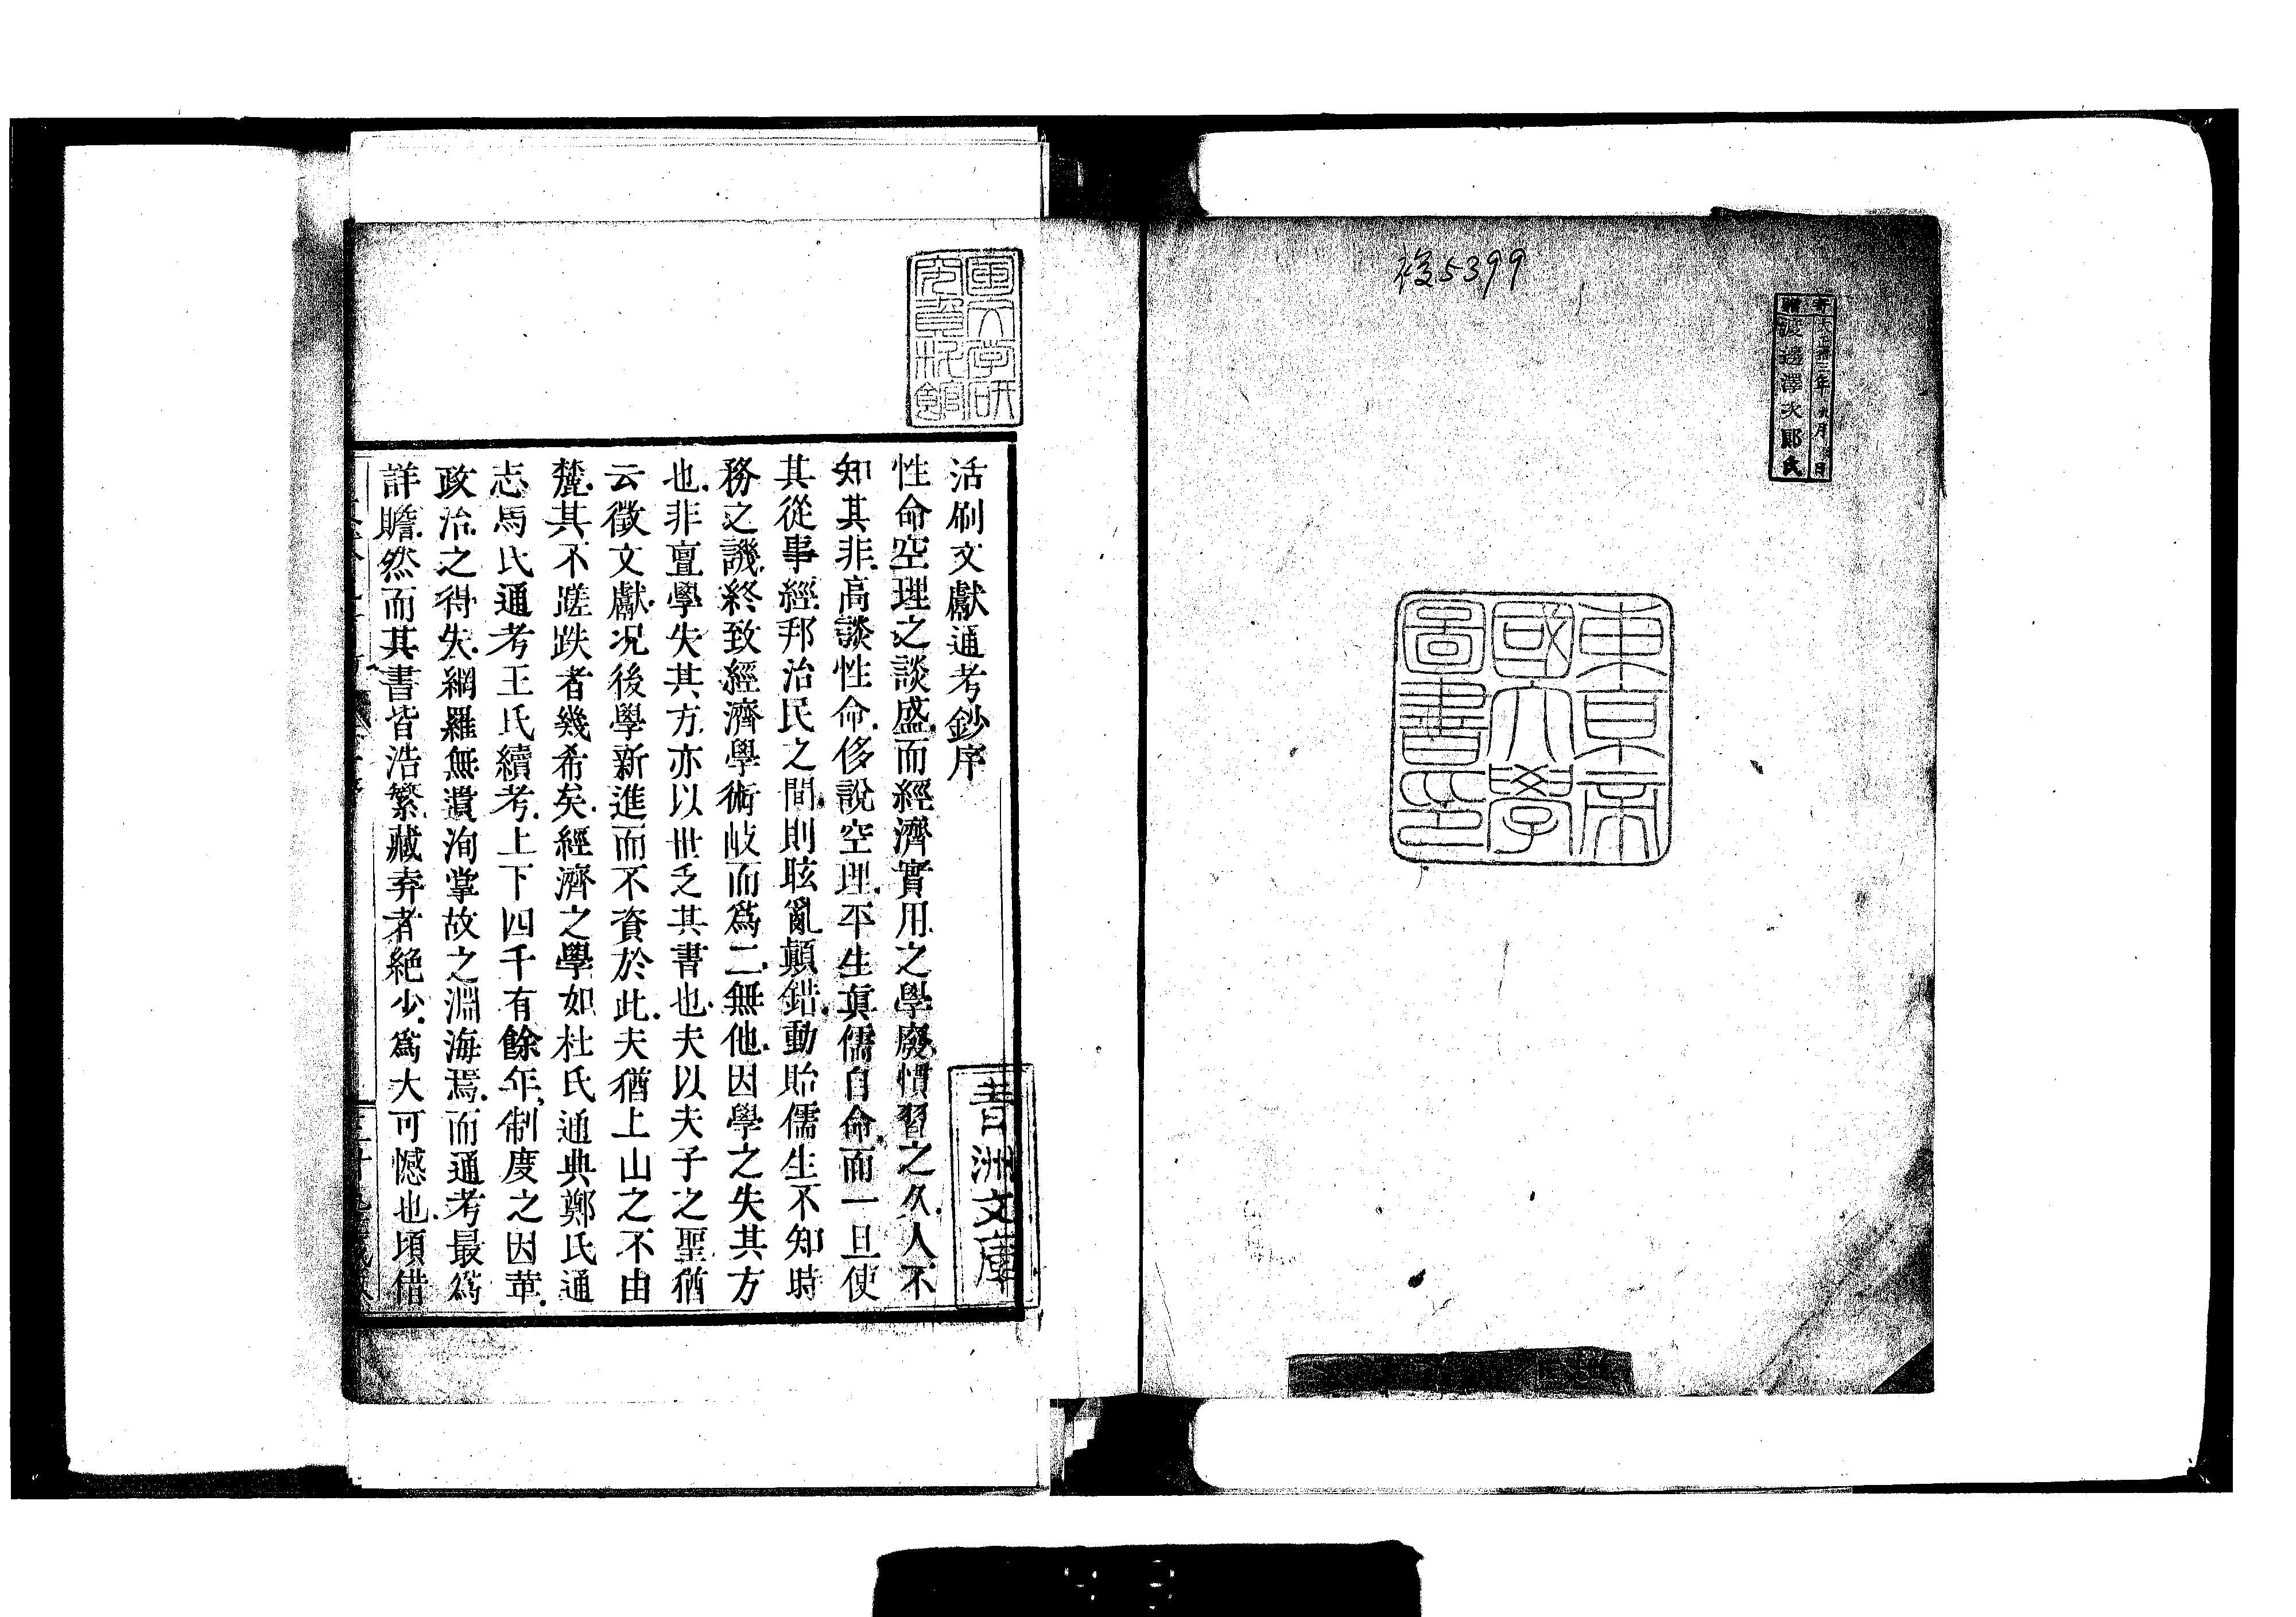 複5399
寄贈
大正十三年 月 日
渡邊澤次郎氏
東京帝
國大學
圖書印
活刷文獻通考鈔序
性命空理之談盛.而經濟實用之學廢.慣習之久.人不
知其非.高談性命.侈說空理.平生眞儒自命.而一旦使
其從事經邦治民之間.則眩亂顚錯.動貽儒生不知時
務之譏.終致經濟學術岐而爲二.無他.因學之失其方
也.非亶學失其方.亦以世乏其書也.夫以夫子之聖.猶
云徵文獻.况後學新進而不資於此.夫猶上山之不由
麓.其不蹉跌者幾希矣.經濟之學.如杜氏通典鄭氏通
志馬氏通考王氏續考.上下四千有餘年.制度之因革.
政治之得失.網羅無遺.洵掌故之淵海焉.而通考最爲
詳贍.然而其書皆浩繁.藏弆者絶少.爲大可憾也.頃借
青洲文庫